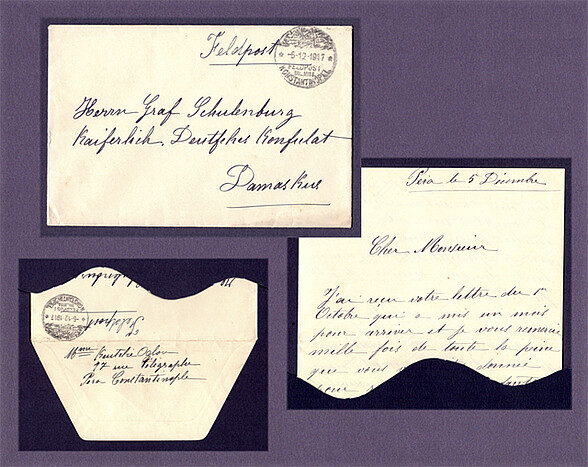 Feldpost
MILITÄRMISSION
* -5·12·1917 *
FELDPOST
KONSTANTINOPEL
Herrn Graf Schulenburg
Kaiserlich Deutsches Konsulat
Damaskus
Pera le 5 Décembre
Cher Monsieur
J'ai reçu votre lettre du 1er
Octobre qui a mis un mois
pour arriver et je vous remercie
mille fois de toute la peine
que vous donnée
pour
Feldpost
Mme Kutché Oglou
rue Télégraphe
Pera Constantinople